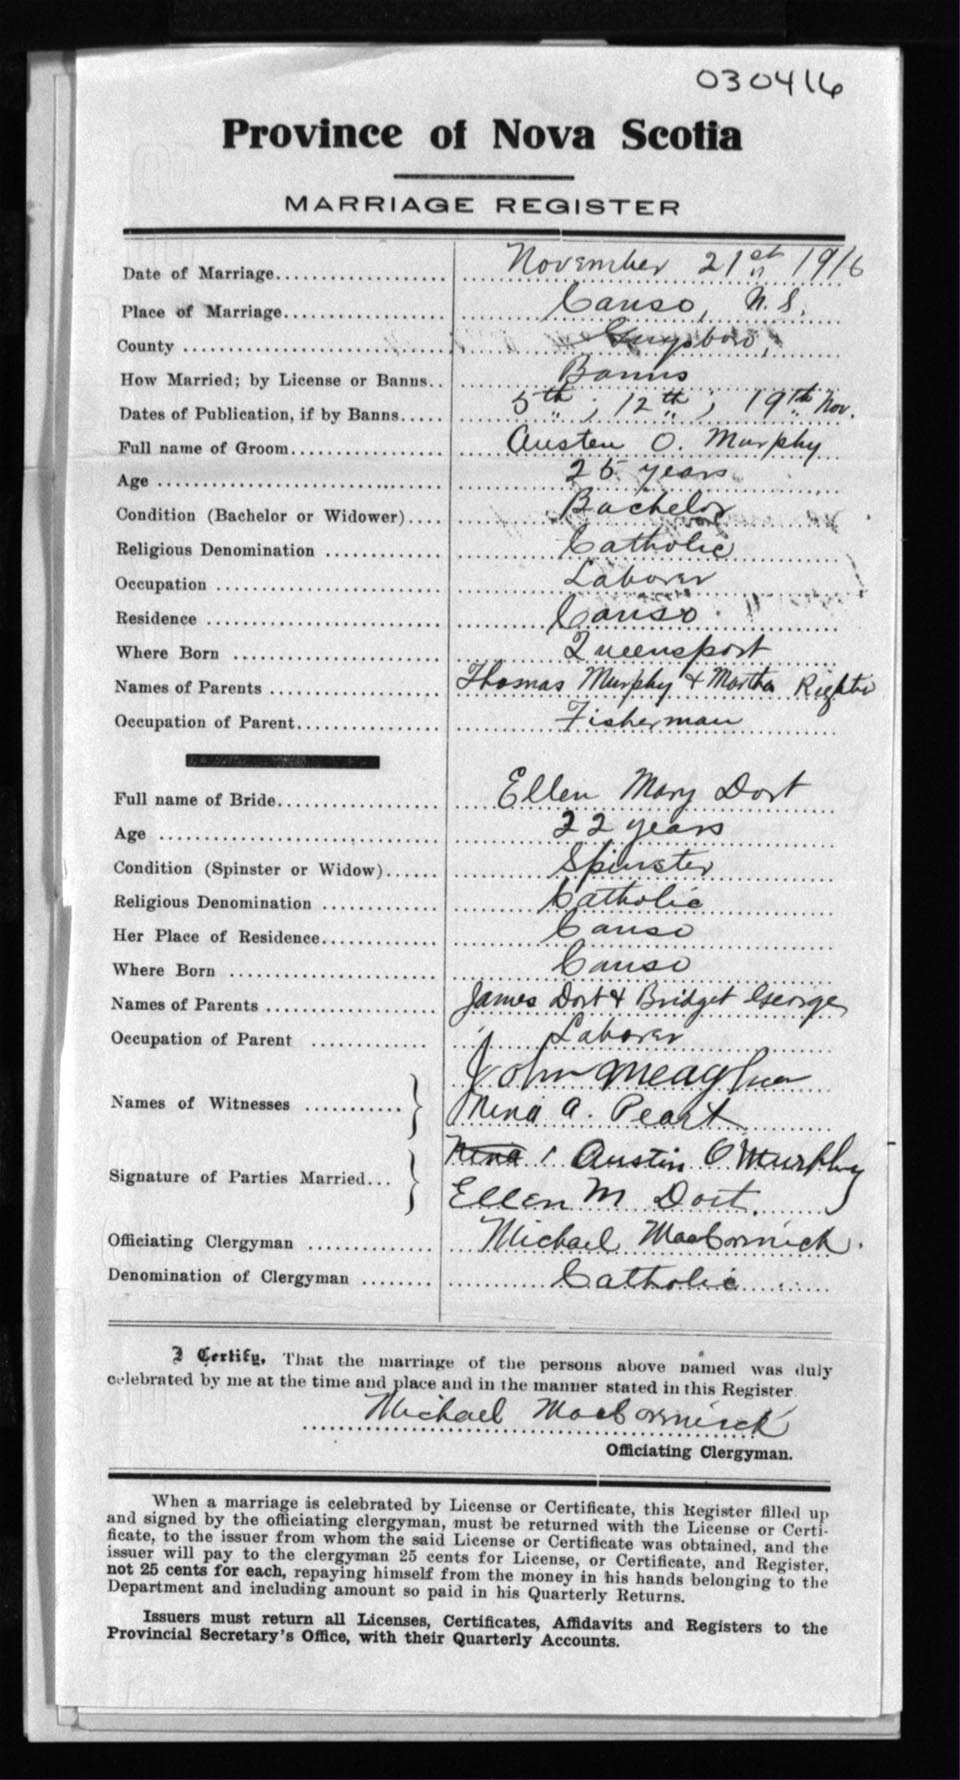 030416
Province of Nova Scotia
MARRIAGE REGISTER
Date of Marriage.................... November 21st 1916
Place of Marriage.................. Canso, N.S.
County .............................. Guysboro,
How Married; by License or Banns.. Banns
Dates of Publication, if by Banns..... 5th ; 12th ; 19th Nov.
Full name of Groom.................. Austen O. Murphy
Age .................................. 25 years
Condition (Bachelor or Widower).... Bachelor
Religious Denomination .............. Catholic
Occupation ........................... Laborer
Residence ............................ Canso
Where Born .......................... Queensport
Names of Parents .................... Thomas Murphy & Martha
Occupation of Parent................. Fisherman
Full name of Bride................... Ellen Mary Dort
Age .................................. 22 years
Condition (Spinster or Widow)...... Spinster
Religious Denomination .............. Catholic
Her Place of Residence.............. Canso
Where Born .......................... Canso
Names of Parents .................... James Dort & Bridget George
Occupation of Parent ............... Laborer
John Meagher
Names of Witnesses ............ Nina A. Peart
Nina Austin O Murphy
Signature of Parties Married...
Ellen M Dort.
Officiating Clergyman ............... Michael MacCormick.
Denomination of Clergyman ........ Catholic
I Certify, That the marriage of the persons above named was duly
celebrated by me at the time and place and in the manner stated in this Register
Michael MacCormick
Officiating Clergyman.
When a marriage is celebrated by License or Certificate, this Register filled up
and signed by the officiating clergyman, must be returned with the License or Certi-
ficate, to the issuer from whom the said License or Certificate was obtained, and the
issuer will pay to the clergyman 25 cents for License, or Certificate, and Register,
not 25 cents for each, repaying himself from the money in his hands belonging to the
Department and including amount so paid in his Quarterly Returns.
Issuers must return all Licenses, Certificates, Affidavits and Registers to the
Provincial Secretary's Office, with their Quarterly Accounts.